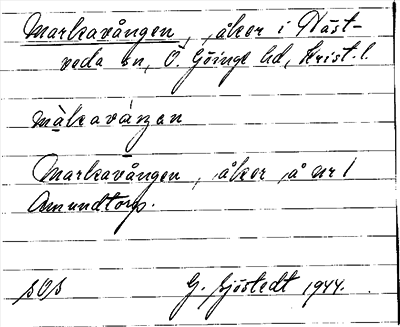 Markavången, åker i Näst-
veda sn, Ö. Göinge hd, Krist. l.
màkavàŋən
Markavången, åker å nr 1
Amundtorp.
SOS G. Sjöstedt 1944.